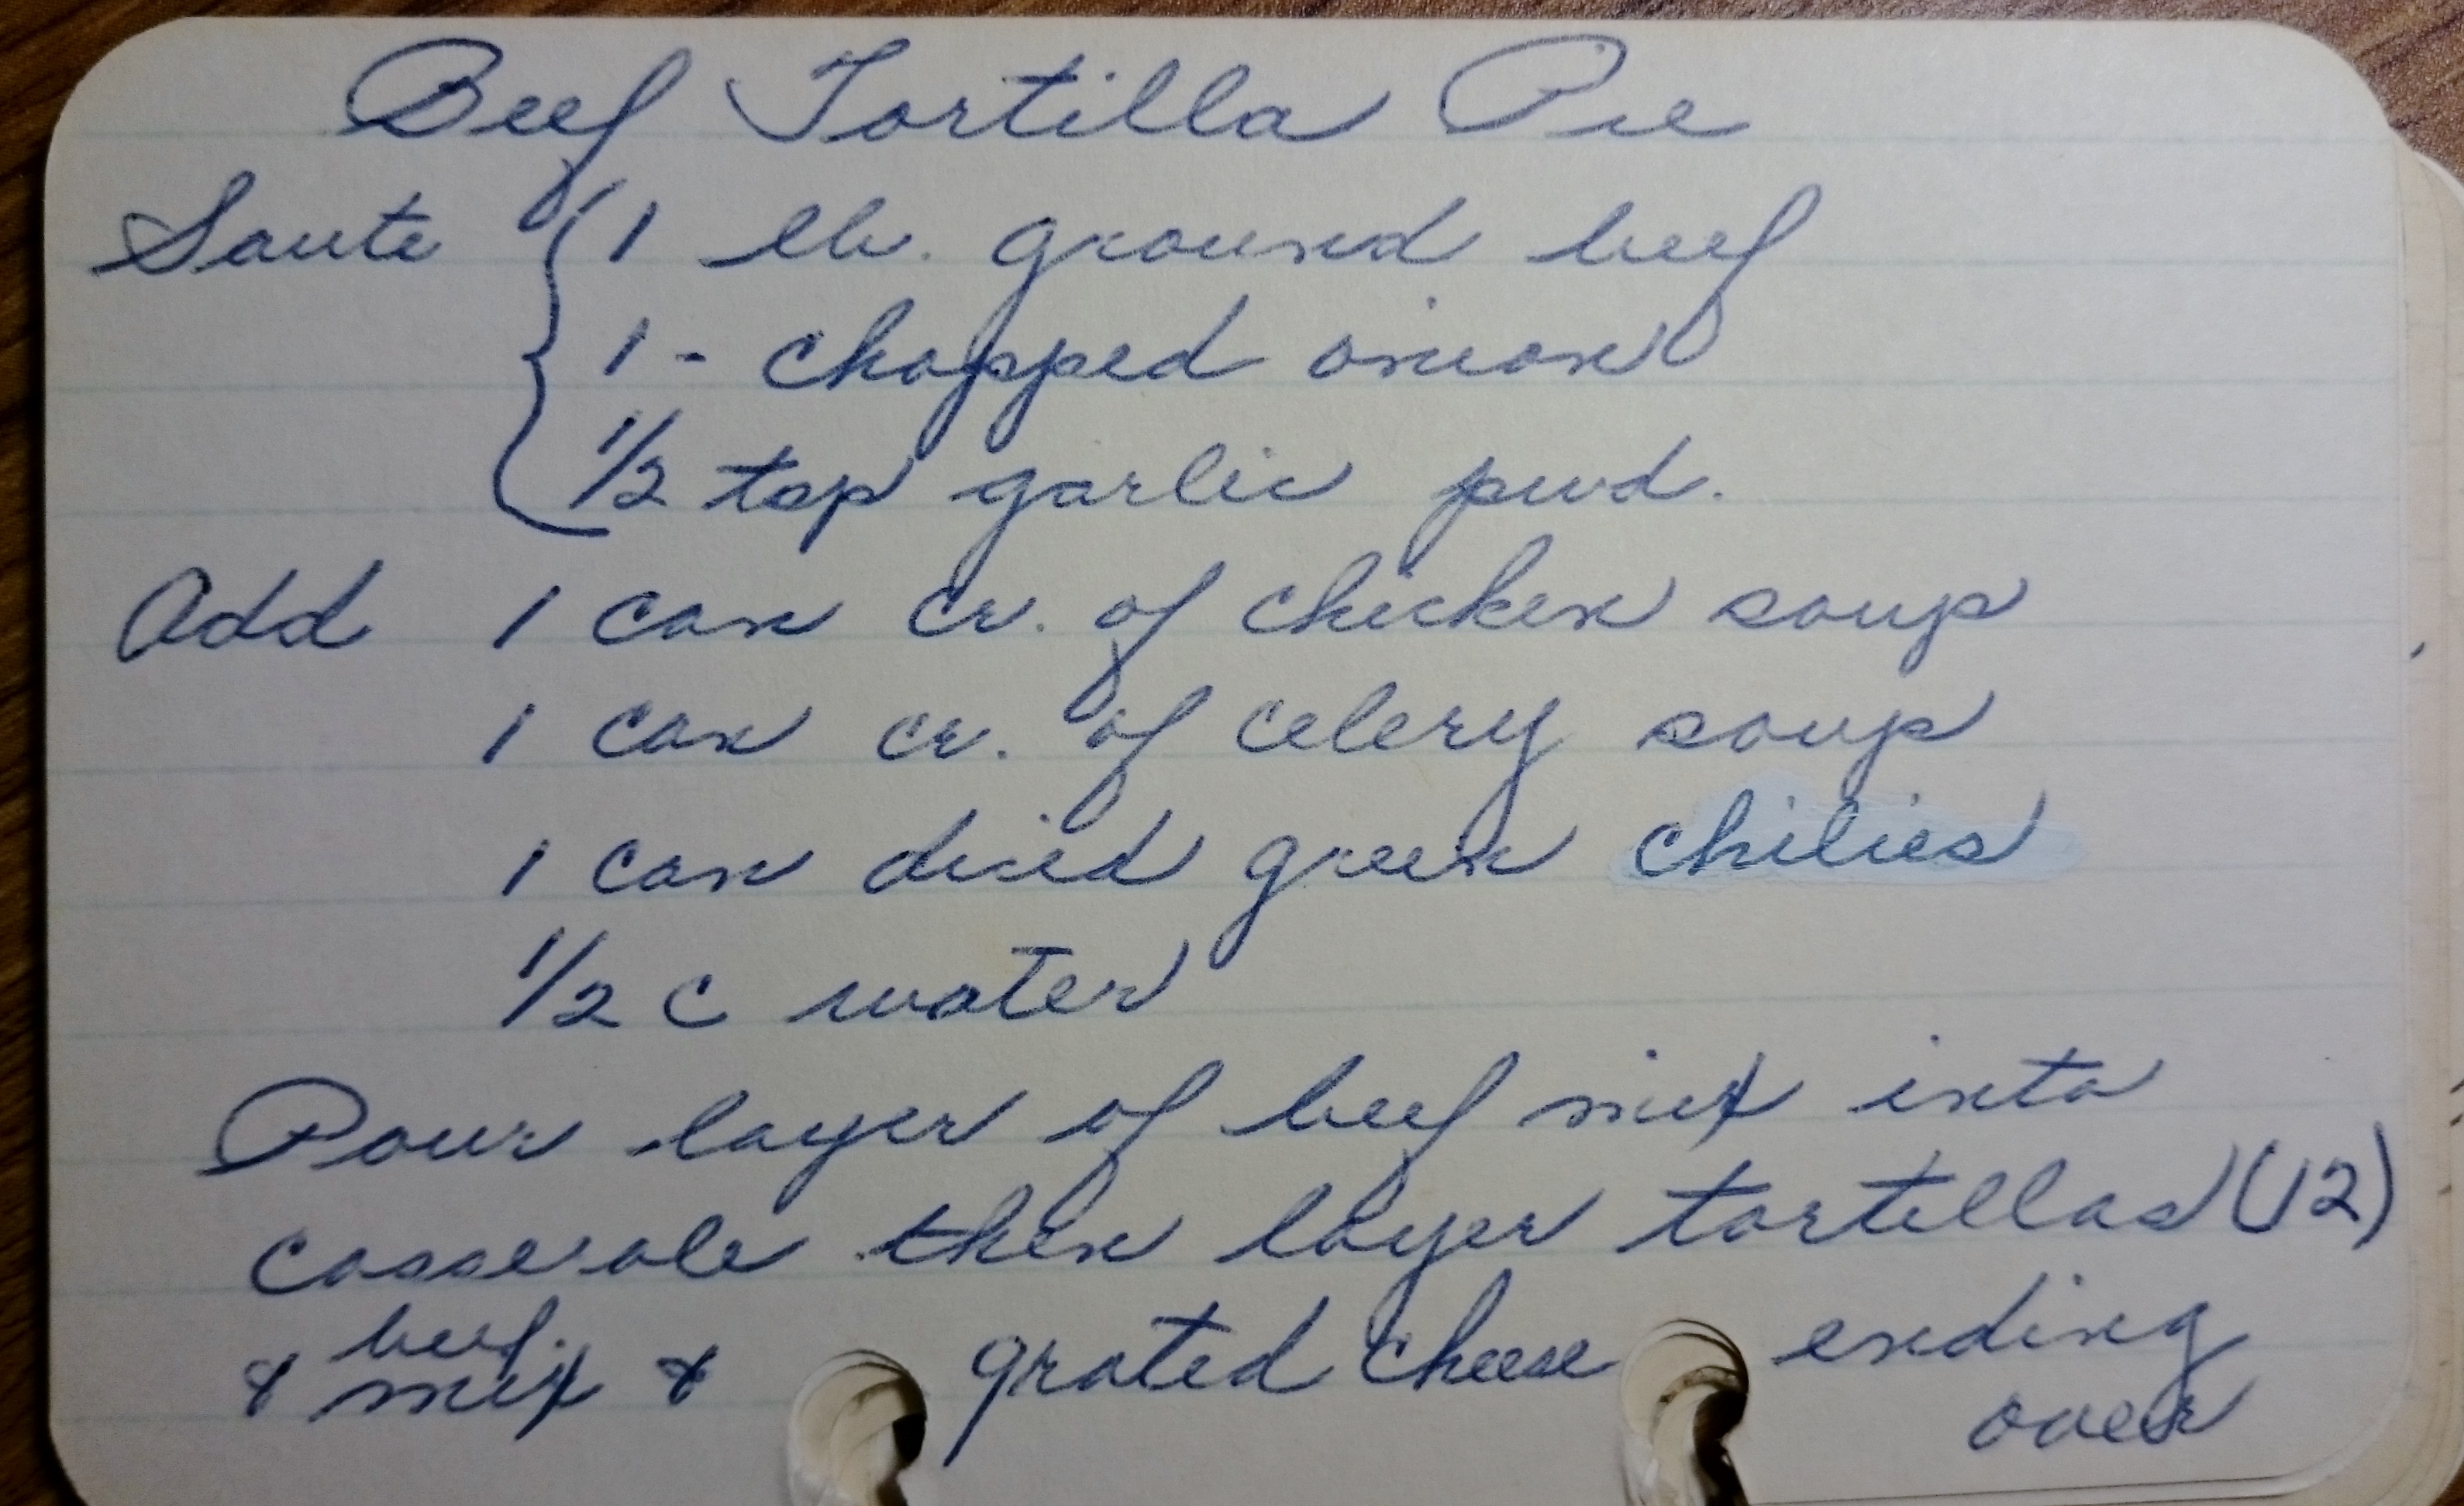 Beef Tortilla Pie
Saute { 1 lb. ground beef
1 - chopped onion
1/2 tsp garlic pwd.
Add 1 can cr. of chicken soup
1 can cr. of celery soup
1 can diced green chilies
1/2 c water
Pour layer of beef mix into
casserole then layer tortillas (12)
& beef mix & grated cheese ending
over